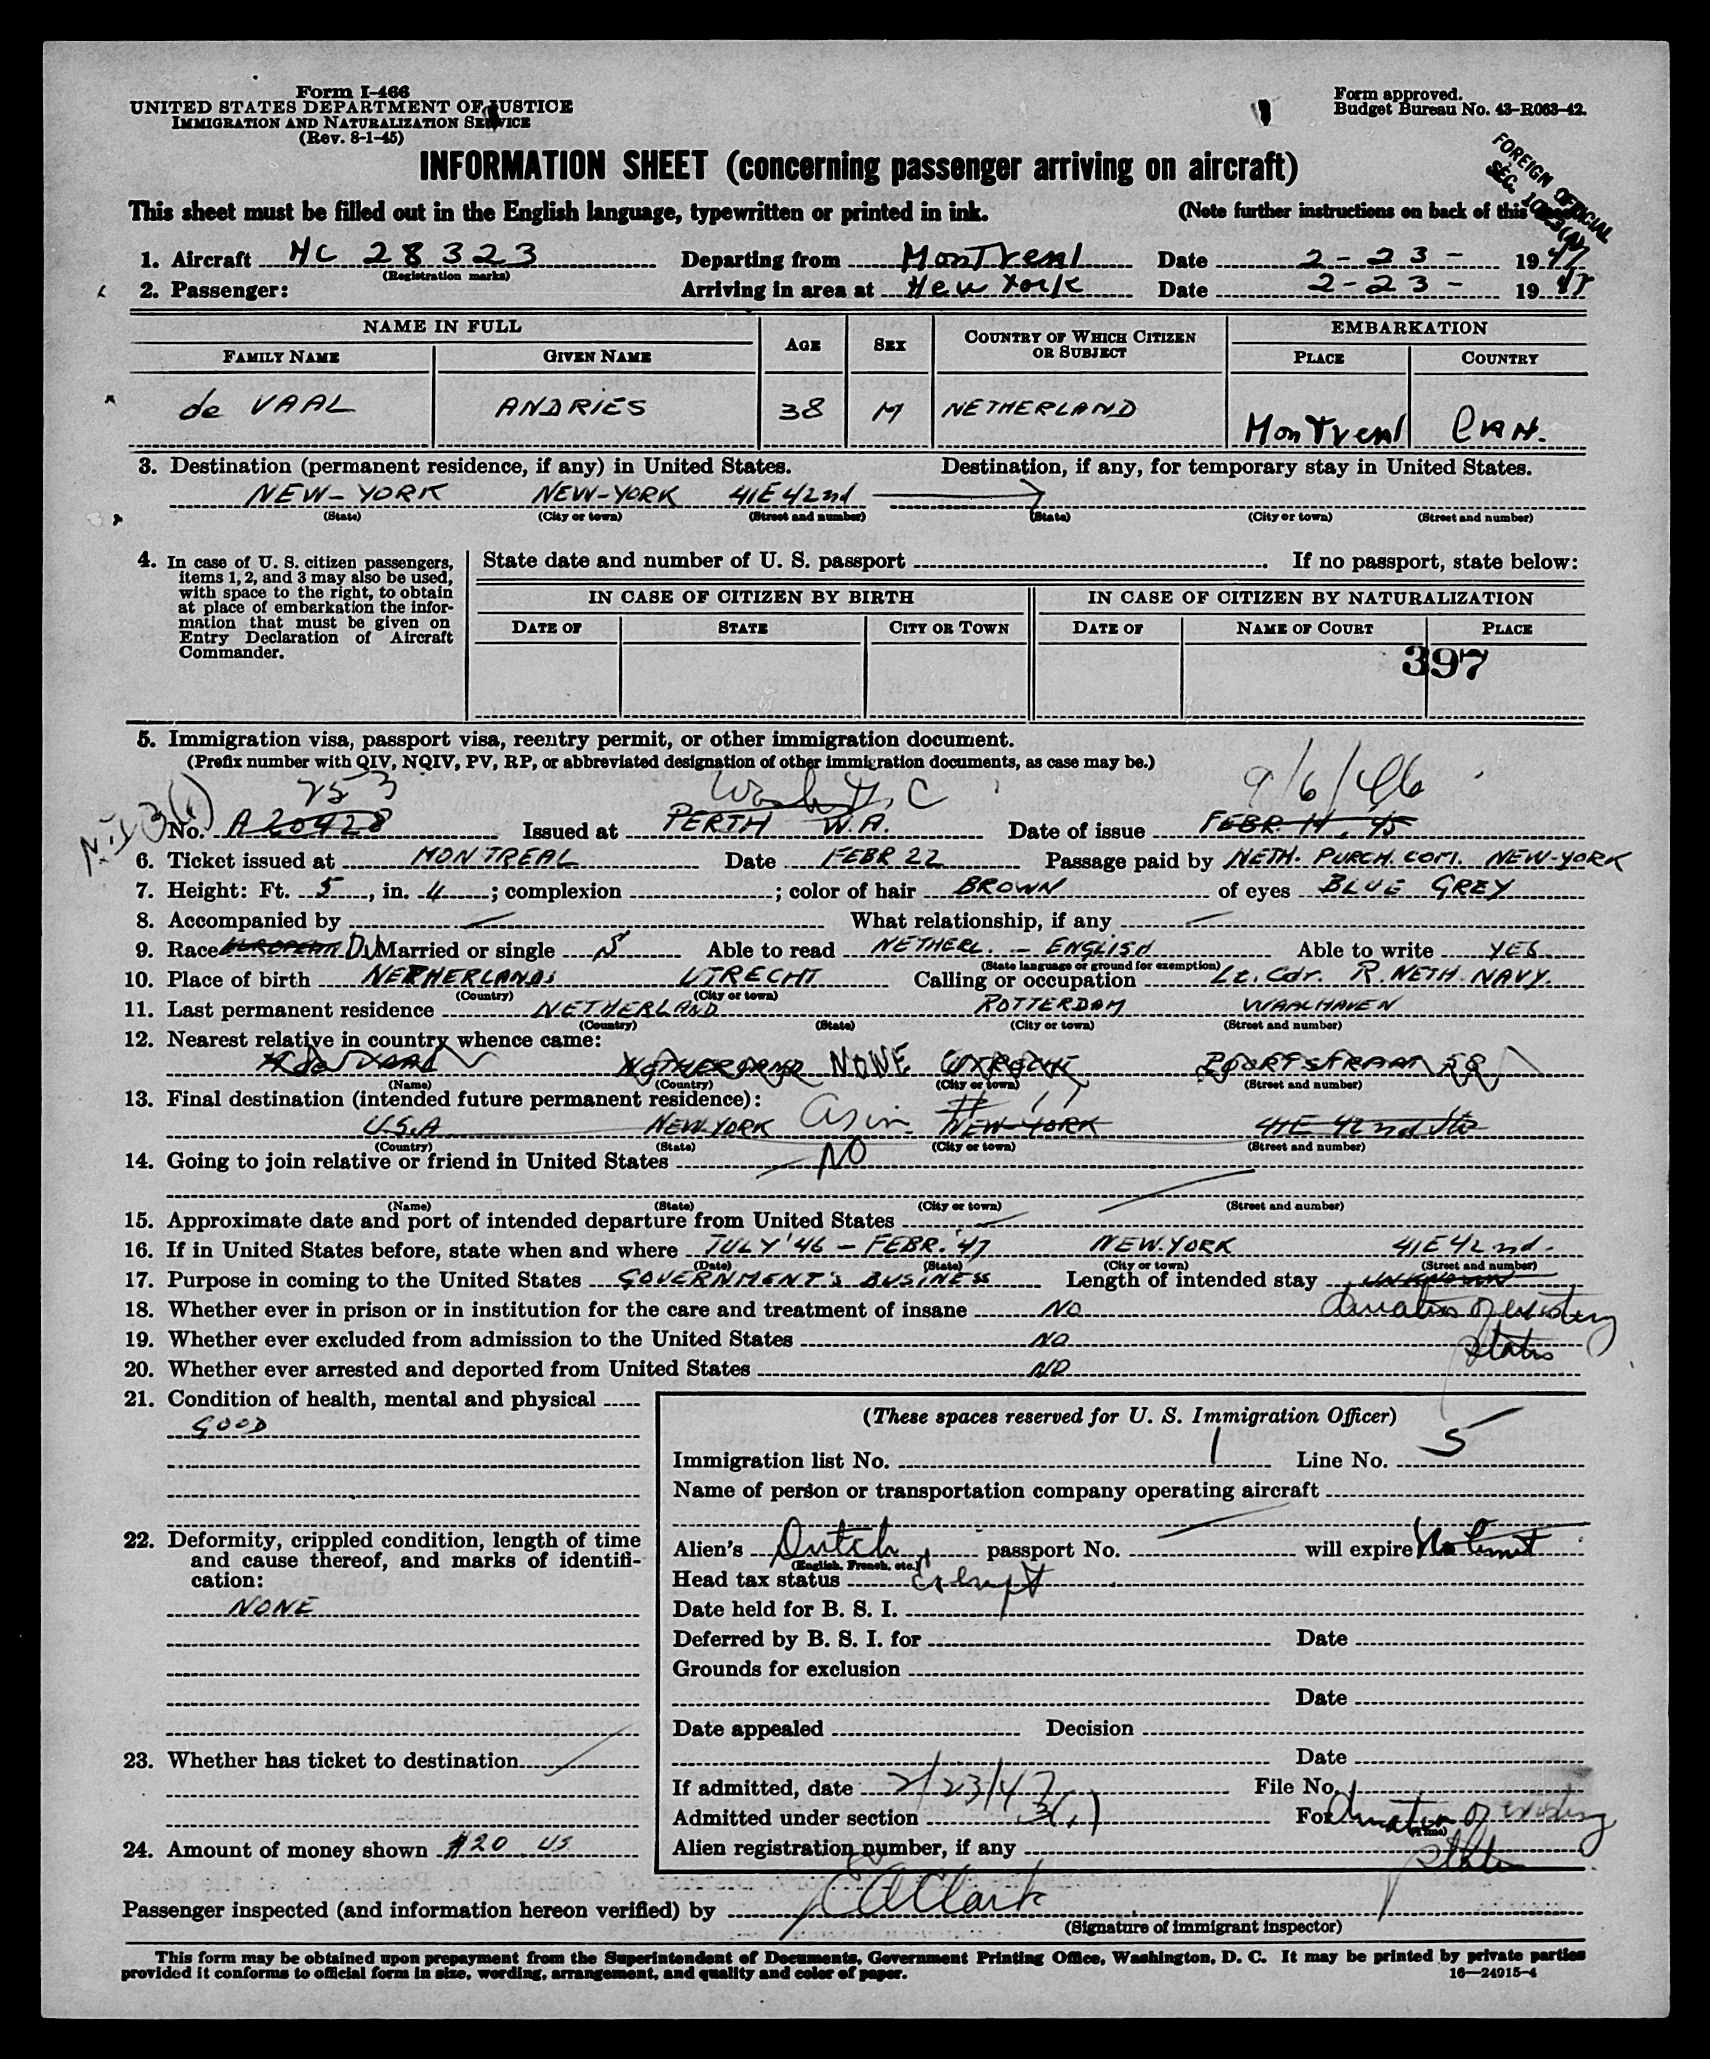 Form I-466
UNITED STATES DEPARTMENT OF JUSTICE
IMMIGRATION AND NATURALIZATION SERVICE
(Rev. 8-1-45)
Form approved.
Budget Bureau No. 43-R063-42.
FOREIGN OFFICIAL
SEC. 10
INFORMATION SHEET (concerning passenger arriving on aircraft)
This sheet must be filled out in the English language, typewritten or printed in ink. (Note further instructions on back of this
1. Aircraft NC 28323 Departing from Montreal Date 2-23- 1947
(Registration marks)
2. Passenger: Arriving in area at New York Date 2-23- 1947
NAME IN FULL AGE SEX COUNTRY OF WHICH CITIZEN OR SUBJECT EMBARKATION
FAMILY NAME GIVEN NAME PLACE COUNTRY
de VAAL ANDRIES 38 M NETHERLAND Montreal CAN.
3. Destination (permanent residence, if any) in United States. Destination, if any, for temporary stay in United States.
NEW-YORK NEW-YORK 41E 42nd
(State) (City or town) (Street and number) (State) (City or town) (Street and number)
4. In case of U. S. citizen passengers, items 1, 2, and 3 may also be used, with space to the right, to obtain at place of embarkation the information that must be given on Entry Declaration of Aircraft Commander.
State date and number of U. S. passport If no passport, state below:
IN CASE OF CITIZEN BY BIRTH IN CASE OF CITIZEN BY NATURALIZATION
DATE OF STATE CITY OR TOWN DATE OF NAME OF COURT PLACE
397
5. Immigration visa, passport visa, reentry permit, or other immigration document.
(Prefix number with QIV, NQIV, PV, RP, or abbreviated designation of other immigration documents, as case may be.)
3(1) 253 Wash D.C 9/6/46
No. A 20428 Issued at PERTH W.A. Date of issue FEBR. 14, 45
6. Ticket issued at MONTREAL Date FEBR 22 Passage paid by NETH. PURCH. COM. NEW-YORK
7. Height: Ft. 5, in. 4; complexion ; color of hair BROWN of eyes BLUE GREY
8. Accompanied by What relationship, if any
9. Race EUROPEAN Du Married or single S Able to read NETHERL. - ENGLISH Able to write YES
(State language or ground for exemption)
10. Place of birth NETHERLANDS UTRECHT Calling or occupation Lt. Cdr. R. NETH. NAVY.
(Country) (City or town)
11. Last permanent residence NETHERLAND ROTTERDAM WAALHAVEN
(Country) (State) (City or town) (Street and number)
12. Nearest relative in country whence came:
NETHERLAND NONE UTRECHT POORTSTRAAT 58
(Name) (Country) (City or town) (Street and number)
13. Final destination (intended future permanent residence):
U.S.A NEW-YORK as in # 11 NEW-YORK 41E 42nd Str
(Country) (State) (City or town) (Street and number)
14. Going to join relative or friend in United States NO
(Name) (State) (City or town) (Street and number)
15. Approximate date and port of intended departure from United States
16. If in United States before, state when and where JULY '46 - FEBR. '47 NEW-YORK 41E 42nd.
(Date) (State) (City or town) (Street and number)
17. Purpose in coming to the United States GOVERNMENT'S BUSINESS Length of intended stay UNKNOWN
duration of existing
status
18. Whether ever in prison or in institution for the care and treatment of insane NO
19. Whether ever excluded from admission to the United States NO
20. Whether ever arrested and deported from United States NO
21. Condition of health, mental and physical
GOOD
22. Deformity, crippled condition, length of time and cause thereof, and marks of identification:
NONE
23. Whether has ticket to destination
24. Amount of money shown $20 US
(These spaces reserved for U. S. Immigration Officer)
Immigration list No. 1 Line No. 5
Name of person or transportation company operating aircraft
Alien's Dutch passport No. will expire No limit
(English, French, etc.)
Head tax status Exempt
Date held for B. S. I.
Deferred by B. S. I. for Date
Grounds for exclusion
Date
Date appealed Decision
Date
If admitted, date 2/23/47 File No.
Admitted under section 3(1) For duration of existing status
(Time)
Alien registration number, if any
Passenger inspected (and information hereon verified) by Clark
(Signature of immigrant inspector)
This form may be obtained upon prepayment from the Superintendent of Documents, Government Printing Office, Washington, D. C. It may be printed by private parties
provided it conforms to official form in size, wording, arrangement, and quality and color of paper. 16—24915-4